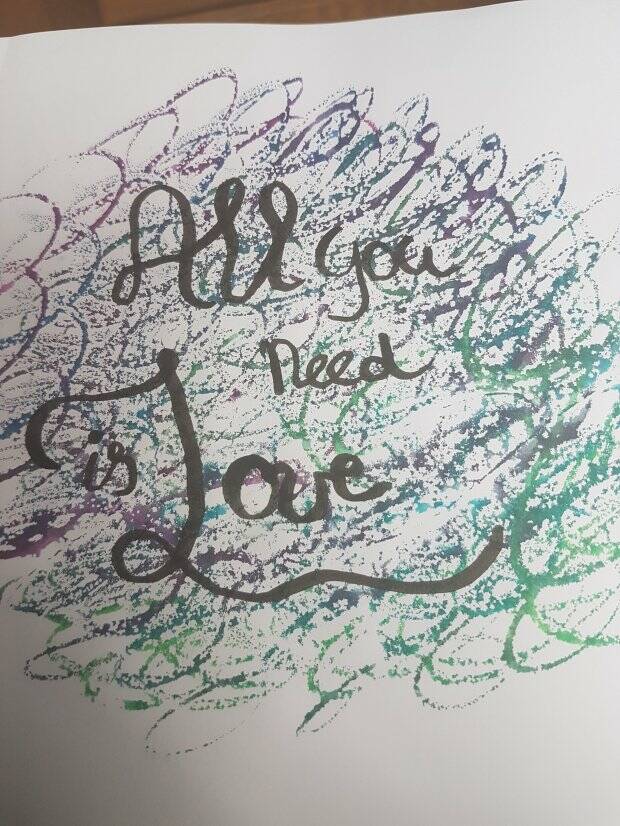 All you
need
is Love